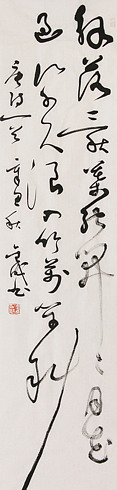 解落三秋葉能開二月花
過江千尺浪入竹萬竿斜
唐詩一
秋
書